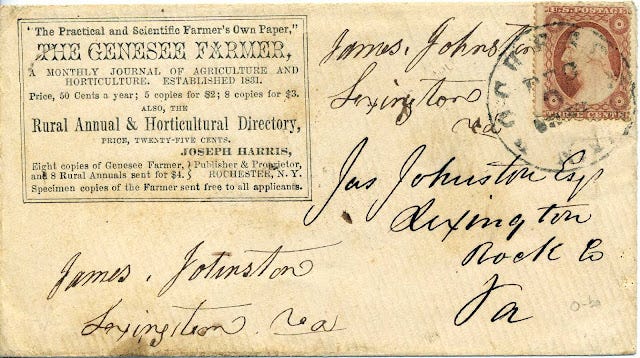 "The Practical and Scientific Farmer's Own Paper,"
THE GENESEE FARMER,
A MONTHLY JOURNAL OF AGRICULTURE AND
HORTICULTURE. ESTABLISHED 1831.
Price, 50 Cents a year; 5 copies for $2; 8 copies for $3.
ALSO, THE
Rural Annual & Horticultural Directory,
PRICE, TWENTY-FIVE CENTS.
JOSEPH HARRIS,
Eight copies of Genesee Farmer, } Publisher & Proprietor,
and 8 Rural Annuals sent for $4. } ROCHESTER, N. Y.
Specimen copies of the Farmer sent free to all applicants.
James. Johnston
Lexington
Va
U.S. POSTAGE
THREE CENTS
ROCHESTER
DEC
Jas Johnston Esq
Lexington
Rock Co
Va
James. Johnston
Lexington. Va